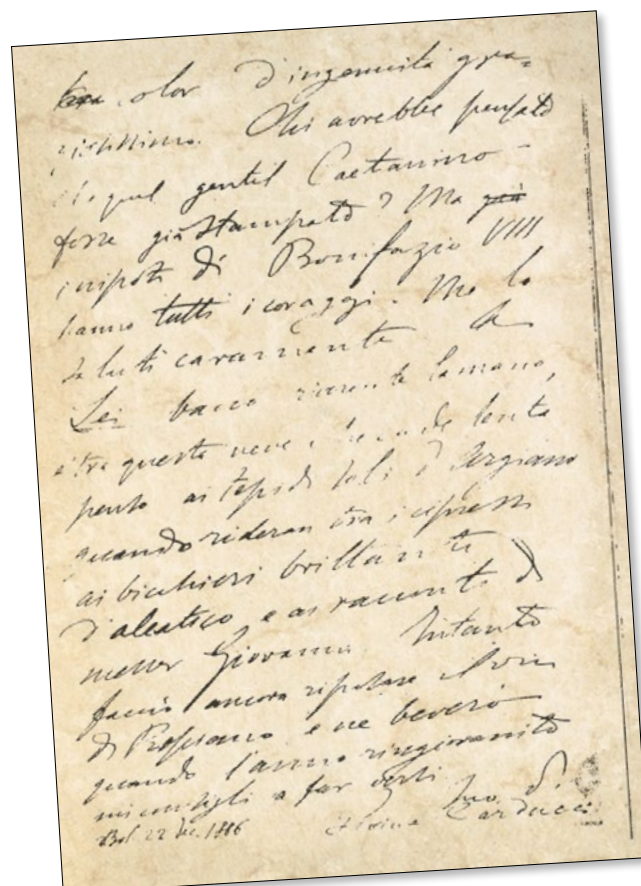 color d'ingenuità gra-
ziosissimo. Chi avrebbe pensato
che quel gentil Caetanino
fosse già stampato? Ma già
i nipoti di Bonifazio VIII
hanno tutti i coraggi. Me lo
saluti caramente. A
Lei bacio riverente la mano,
e tra questa neve che cade lenta
penso ai tepidi soli d'Argiano
quando rideran tra i cipressi
ai bicchieri brillanti
d'aleatico e ai racconti di
messer Giovanni. Intanto
faccio ancora riposare il vin
di e ne beverò
quando l'anno ringiovanito
mi consigli a far versi.
Suo d.
Bol. 22 dec. 1886 Carducci